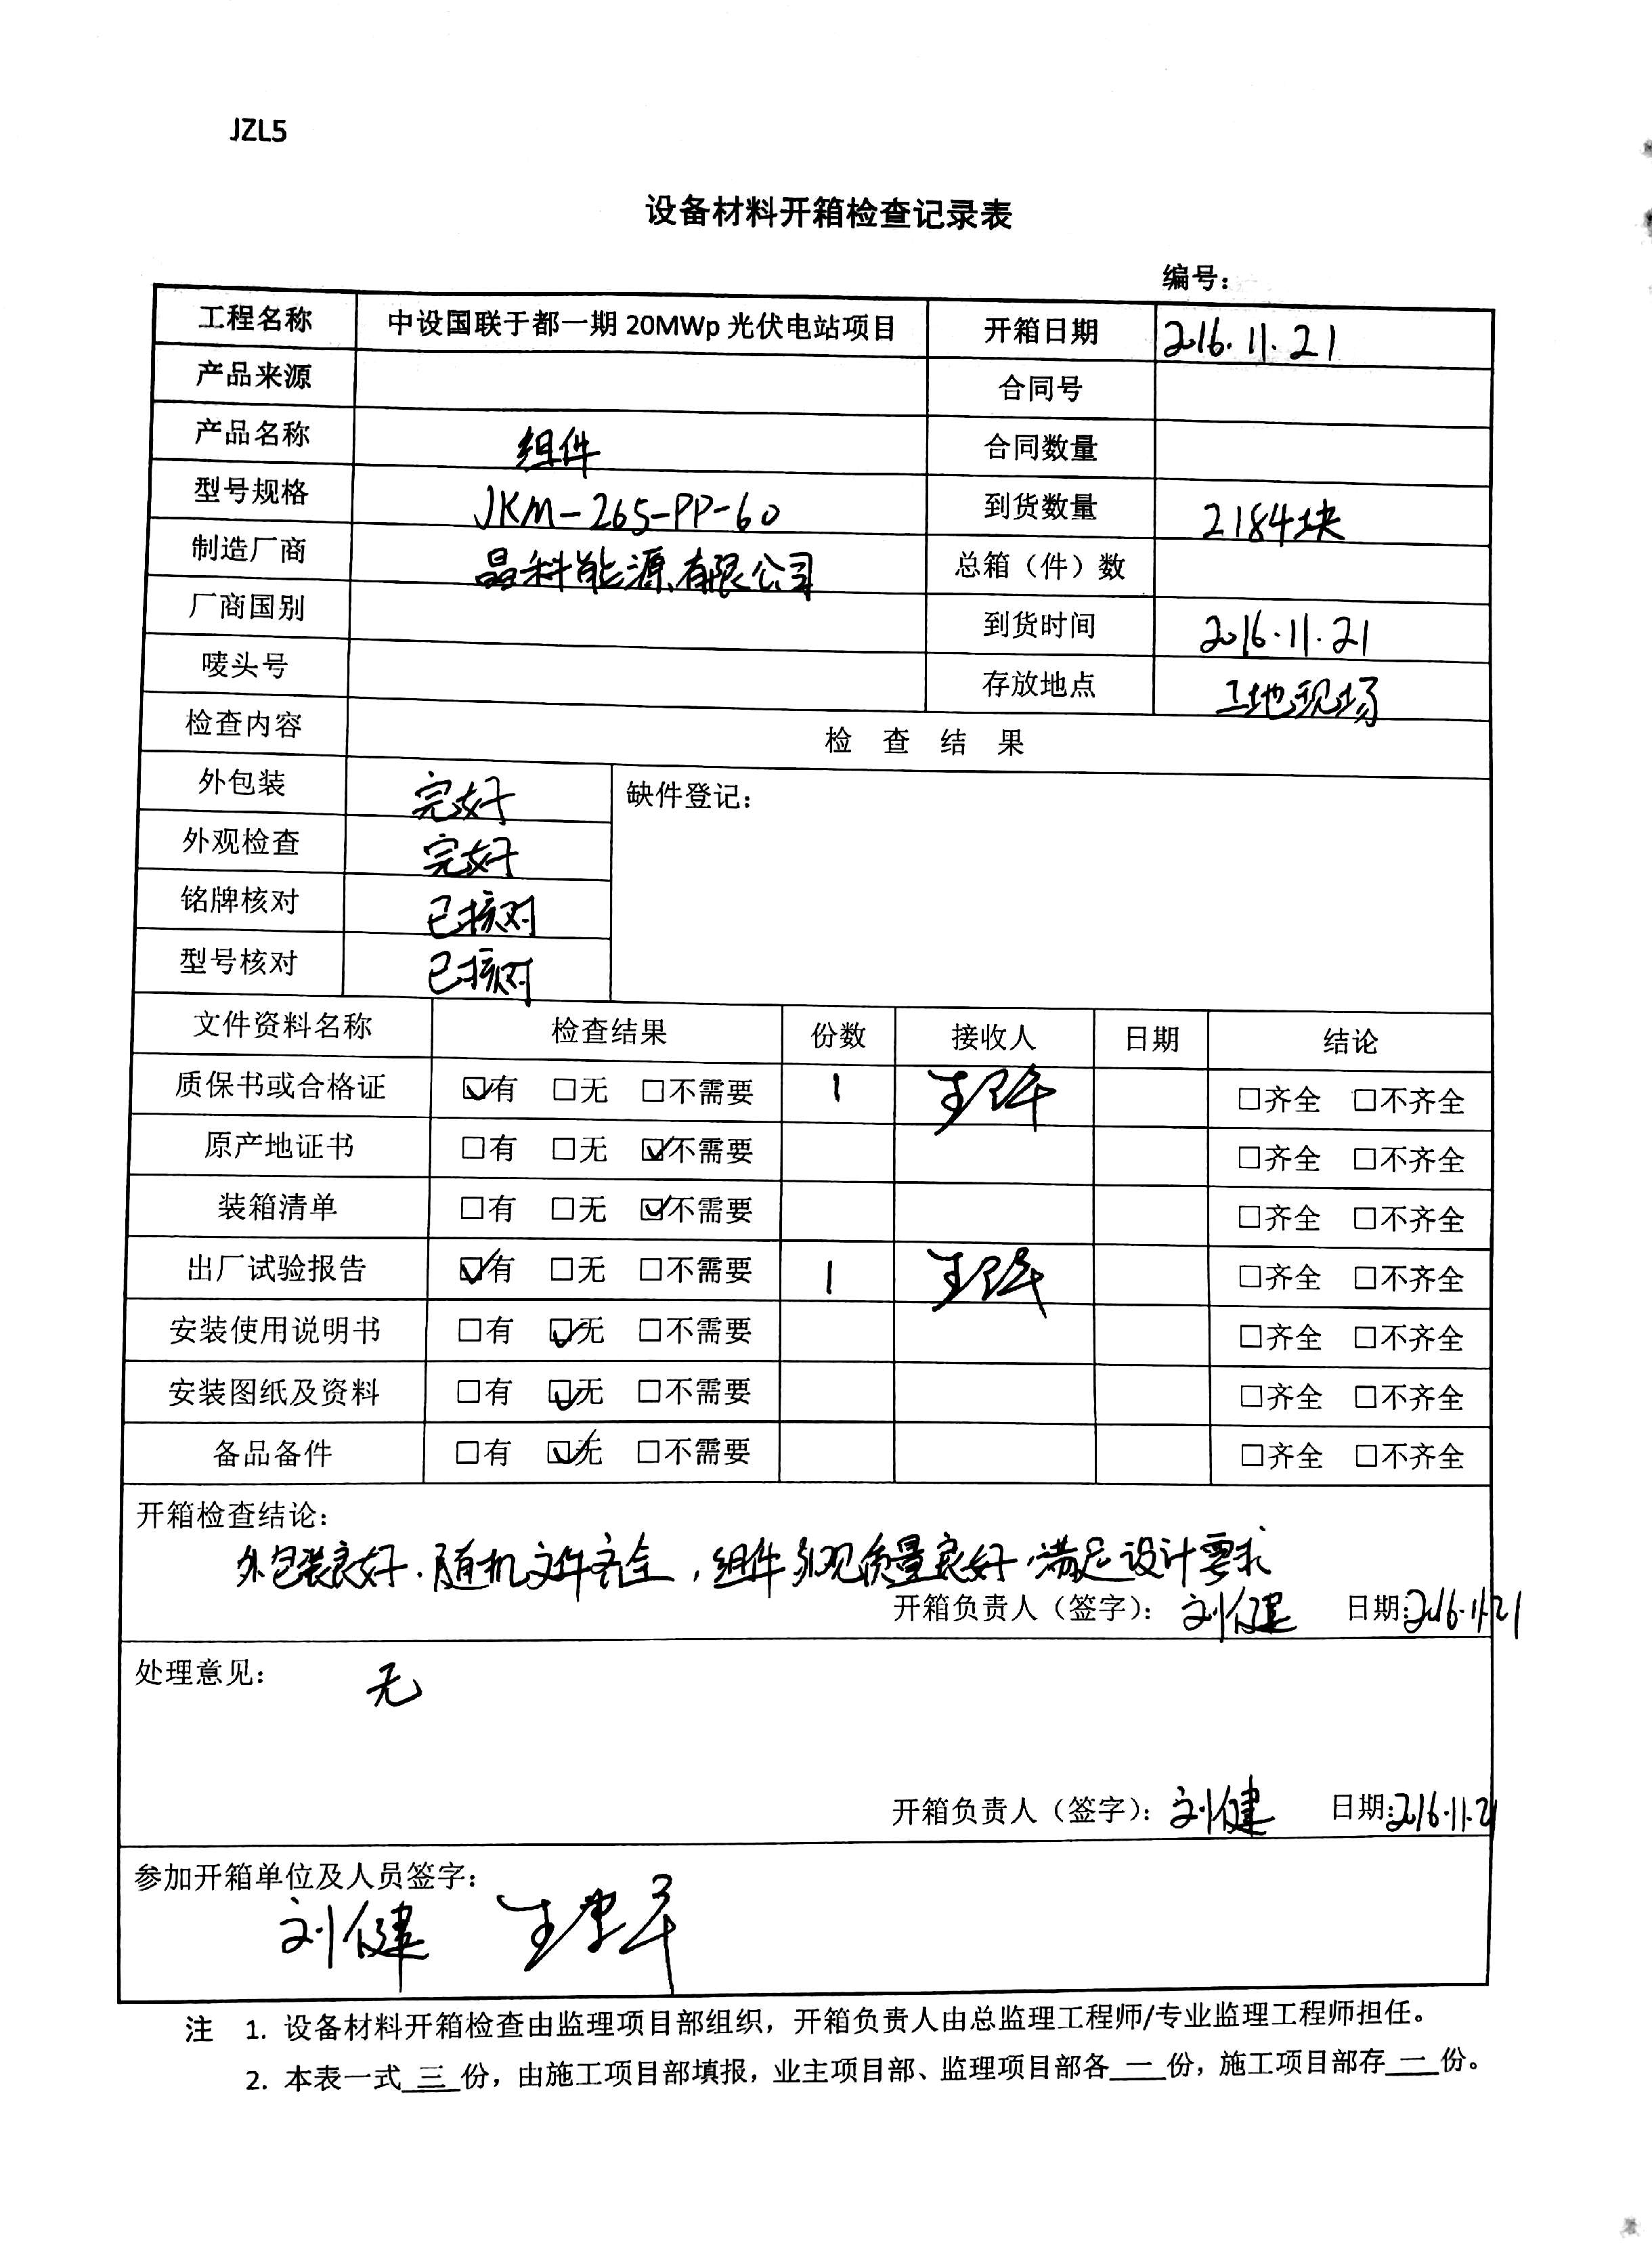 JZL5
设备材料开箱检查记录表
编号：
工程名称 中设国联于都一期 20MWp 光伏电站项目 开箱日期 2016.11.21
产品来源 合同号
产品名称 组件 合同数量
型号规格 JKM-265-PP-60 到货数量 2184块
制造厂商 晶科能源有限公司 总箱（件）数
厂商国别 到货时间 2016.11.21
唛头号 存放地点 工地现场
检查内容 检 查 结 果
外包装 完好 缺件登记：
外观检查 完好
铭牌核对 已核对
型号核对 已核对
文件资料名称 检查结果 份数 接收人 日期 结论
质保书或合格证 ☑有 □无 □不需要 1 □齐全 □不齐全
原产地证书 □有 □无 ☑不需要 □齐全 □不齐全
装箱清单 □有 □无 ☑不需要 □齐全 □不齐全
出厂试验报告 ☑有 □无 □不需要 1 □齐全 □不齐全
安装使用说明书 □有 ☑无 □不需要 □齐全 □不齐全
安装图纸及资料 □有 ☑无 □不需要 □齐全 □不齐全
备品备件 □有 ☑无 □不需要 □齐全 □不齐全
开箱检查结论：
外包装良好．随机文件齐全，组件外观质量良好．满足设计要求
开箱负责人（签字）： 刘健 日期：2016.11.21
处理意见： 无
开箱负责人（签字）： 刘健 日期：2016.11.21
参加开箱单位及人员签字：
刘健
注 1. 设备材料开箱检查由监理项目部组织，开箱负责人由总监理工程师/专业监理工程师担任。
2. 本表一式 三 份，由施工项目部填报，业主项目部、监理项目部各 一 份，施工项目部存 一 份。